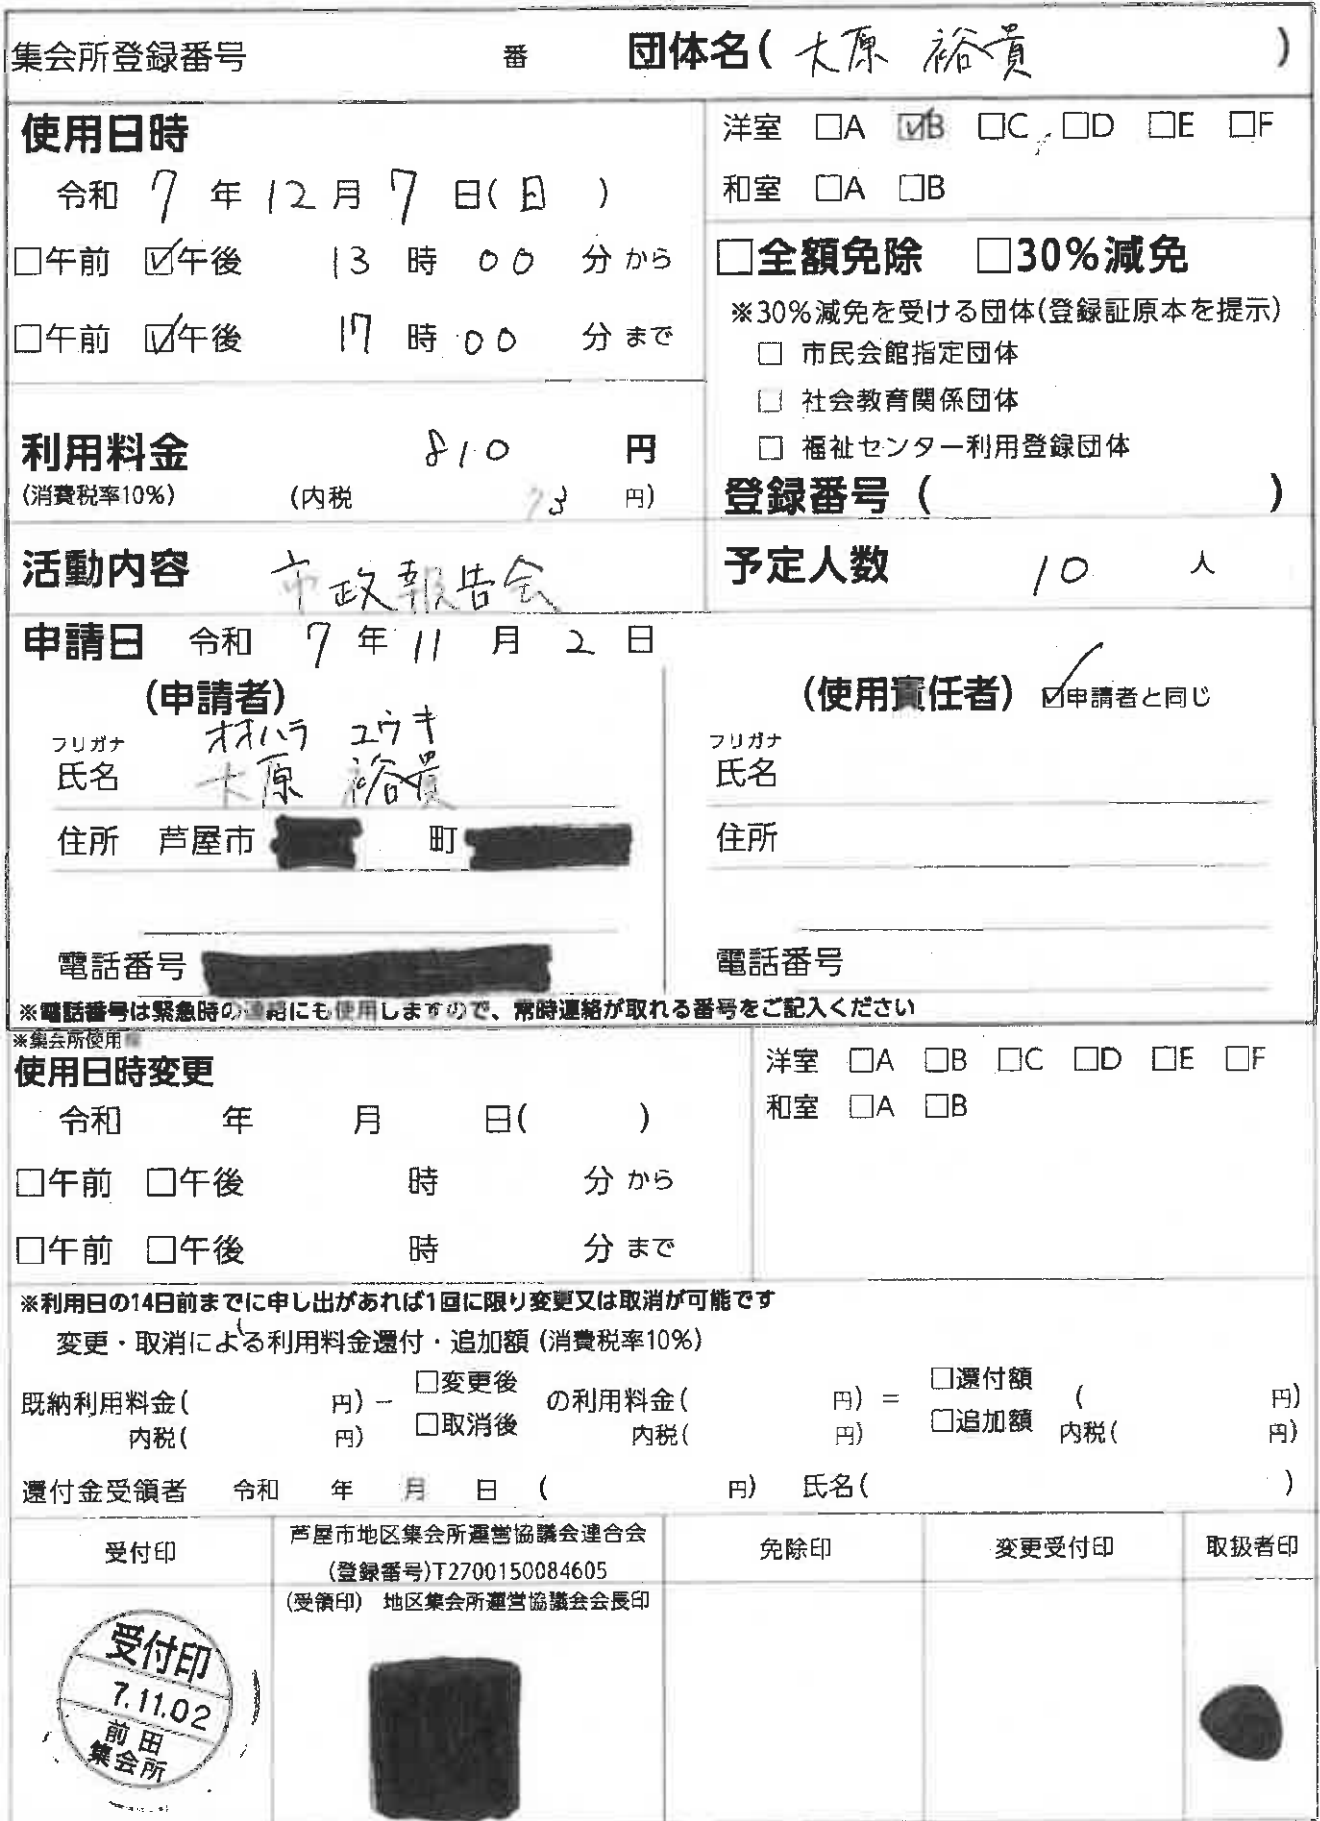 集会所登録番号 番 団体名( 大原 裕貴 )
使用日時
令和 7 年 12 月 7 日( 日 )
□午前 ☑午後 13 時 00 分 から
□午前 ☑午後 17 時 00 分 まで
洋室 □A ☑B □C □D □E □F
和室 □A □B
□全額免除 □30%減免
※30%減免を受ける団体(登録証原本を提示)
□ 市民会館指定団体
□ 社会教育関係団体
□ 福祉センター利用登録団体
登録番号 ( )
利用料金 810 円
(消費税率10%) (内税 73 円)
活動内容 市政報告会
予定人数 10 人
申請日 令和 7 年 11 月 2 日
(申請者)
フリガナ オオハラ ユウキ
氏名 大原 裕貴
住所 芦屋市 町
電話番号
(使用責任者) ☑申請者と同じ
フリガナ
氏名
住所
電話番号
※電話番号は緊急時の連絡にも使用しますので、常時連絡が取れる番号をご記入ください
※集会所使用欄
使用日時変更
令和 年 月 日( )
□午前 □午後 時 分 から
□午前 □午後 時 分 まで
洋室 □A □B □C □D □E □F
和室 □A □B
※利用日の14日前までに申し出があれば1回に限り変更又は取消が可能です
変更・取消による利用料金還付・追加額 (消費税率10%)
既納利用料金( 円) − □変更後 □取消後 の利用料金( 円) = □還付額 □追加額 ( 円)
内税( 円) 内税( 円) 内税( 円)
還付金受領者 令和 年 月 日 ( 円) 氏名( )
受付印
芦屋市地区集会所運営協議会連合会
(登録番号)T2700150084605
免除印
変更受付印
取扱者印
(受領印) 地区集会所運営協議会会長印
受付印
7.11.02
前田
集会所